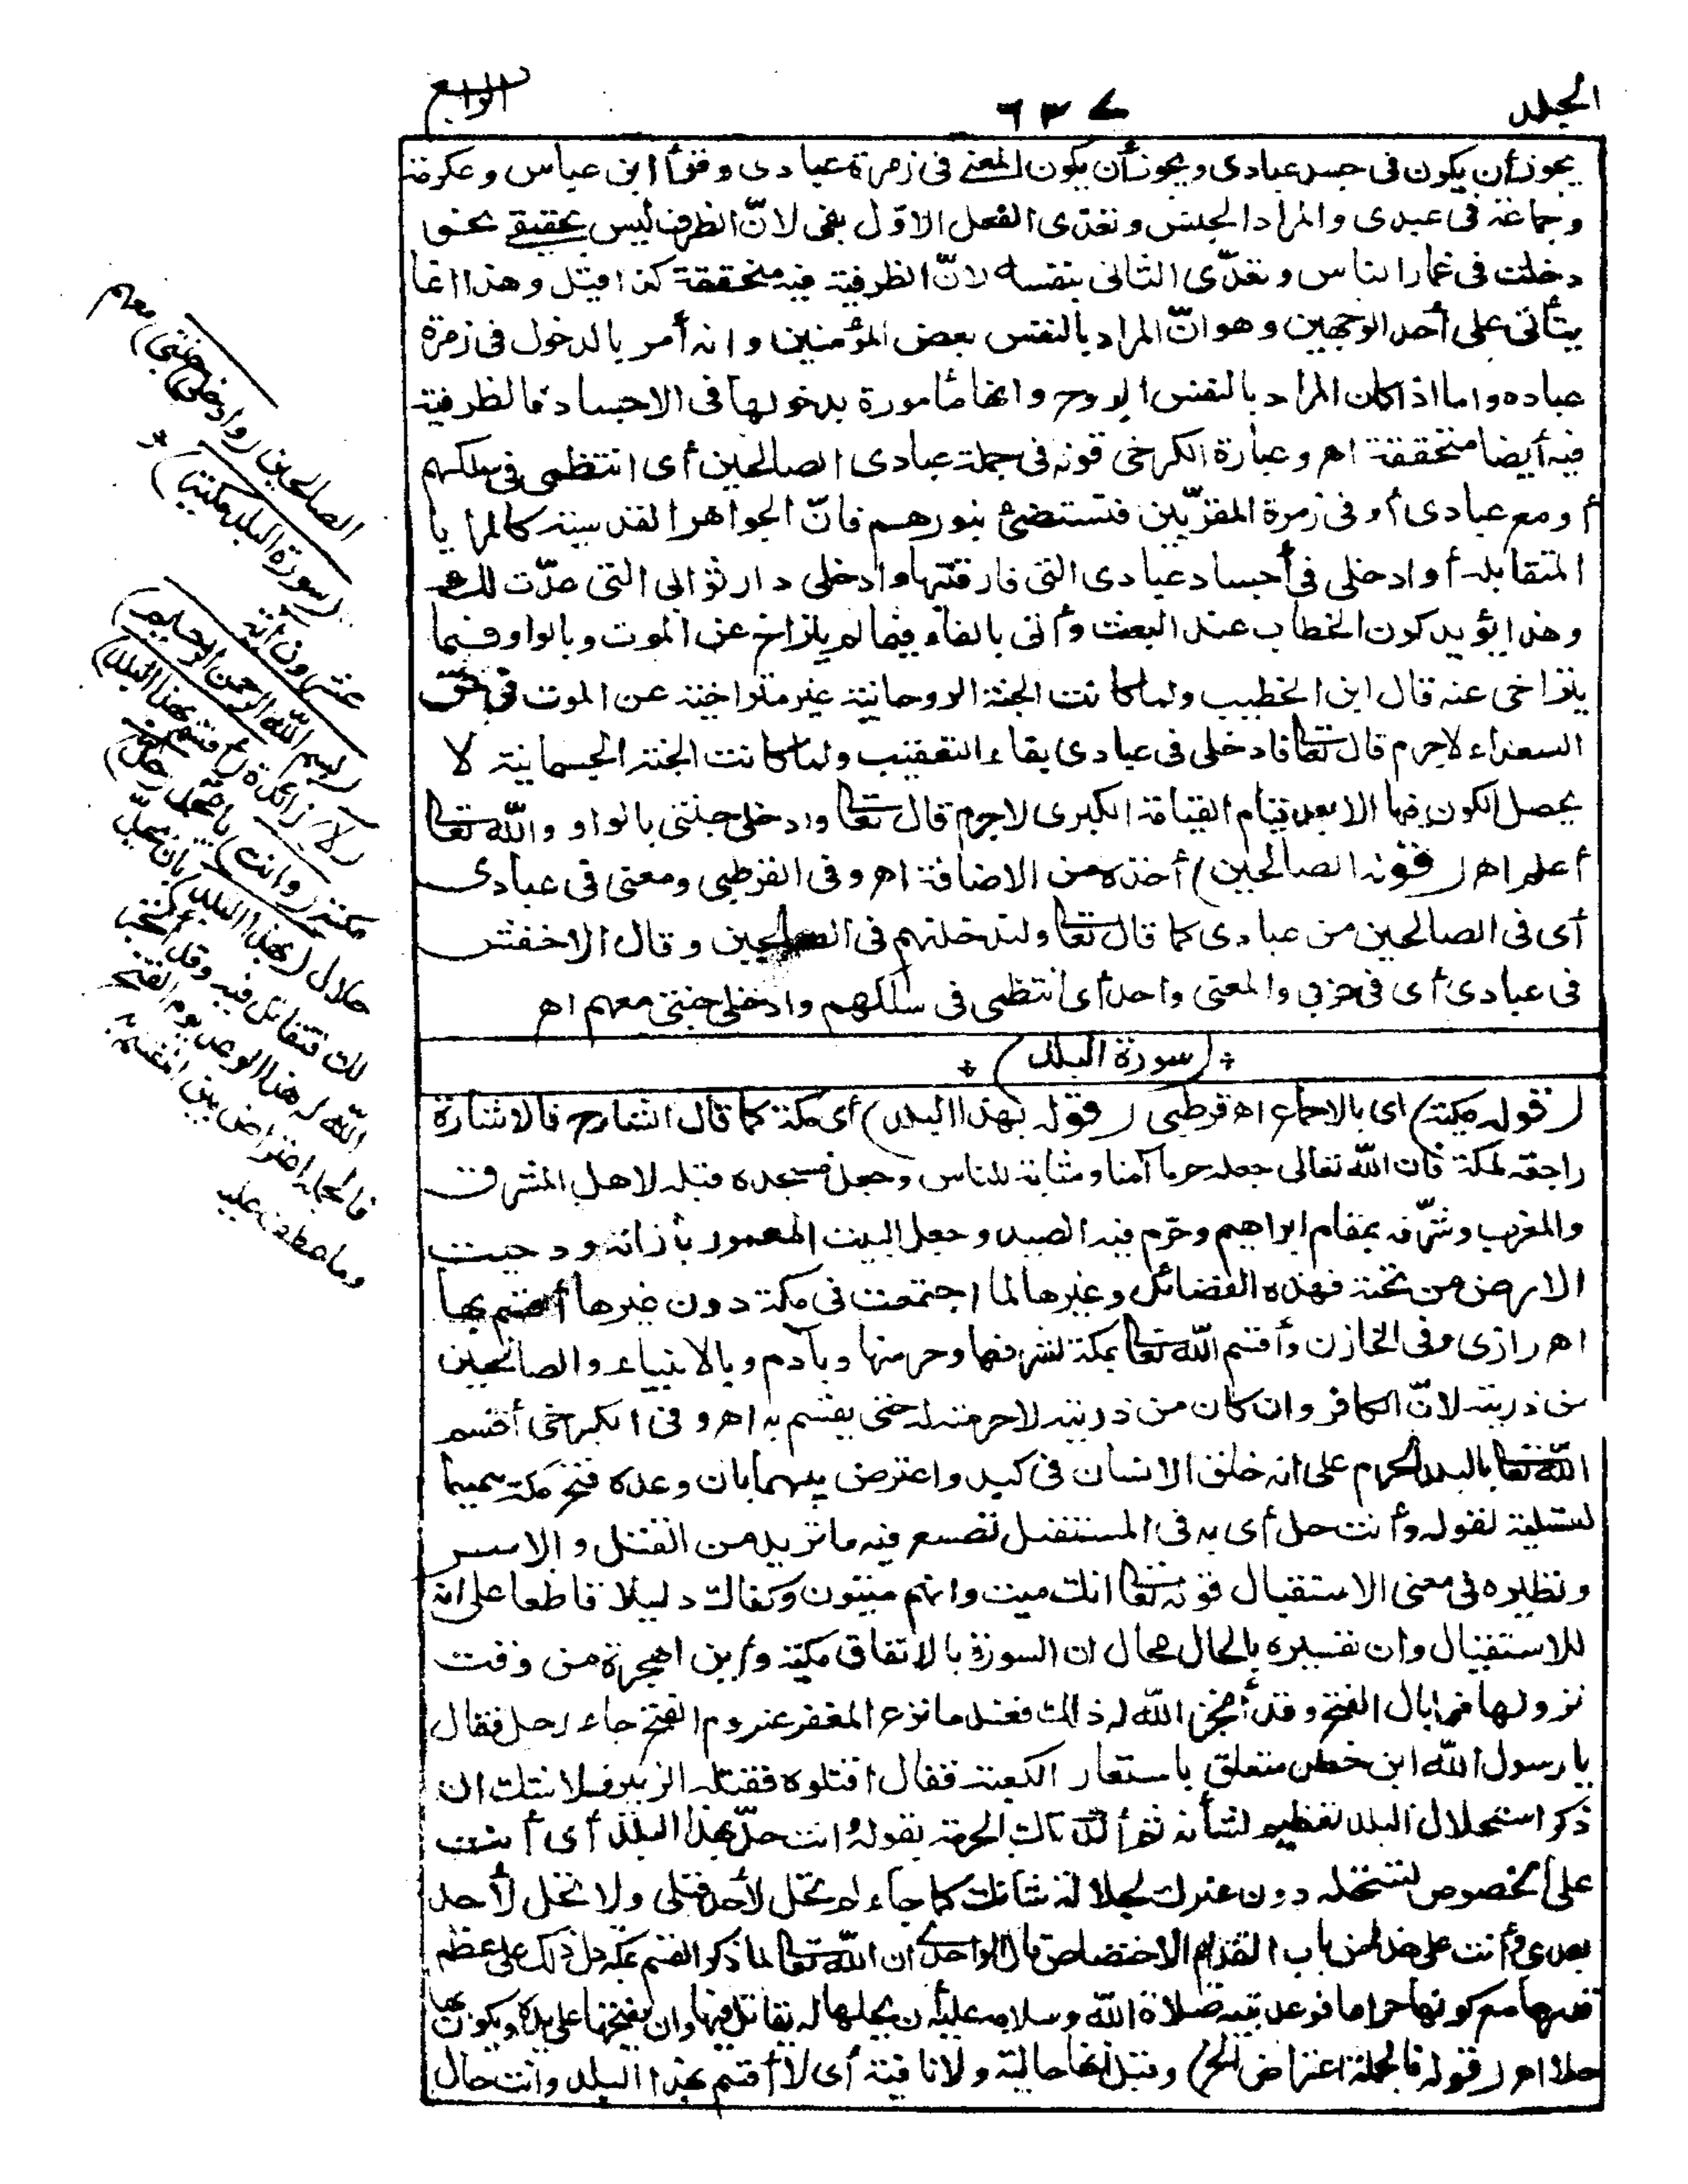 الجلد
٦٣٧
الرابع
يجوز أن يكون فى جسد عبادى ويجوز أن يكون المعنى فى زمرة عبادى وقرأ ابن عباس وعكرمة
وجماعة فى عبدى والمراد الجنس وتعدى الفعل الاوّل بفى لانّ الظرف ليس بحقيقى نحو
دخلت فى غمار الناس وتعدّى الثانى بنفسه لانّ الظرفية فيه متحققة كذا قيل وهذا انما
يتأتى على أحد الوجهين وهو انّ المراد بالنفس بعض المؤمنين وانه أمر بالدخول فى زمرة
عباده واما اذا كان المراد بالنفس الروح وانها مأمورة بدخولها فى الاجساد فالظرفية
فيه أيضا متحققة اهـ وعبارة الكرخى قوله فى جملة عبادى الصالحين أى انتظمى فى سلكهم
أو مع عبادى أو فى زمرة المقرّبين فتستضئ بنورهم فانّ الجواهر القدسية كالمرايا
المتقابلة أو ادخلى فى أجساد عبادى التى فارقتها وادخلى دار ثوابى التى عدّت لك
وهذا يؤيد كون الخطاب عند البعث وأتى بالفاء فيما لم يتراخ عن الموت وبالواو فيما
يتراخى عنه قال ابن الخطيب ولما كانت الجنة الروحانية غير متراخية عن الموت فى حق
السعداء لاجرم قال تعا فادخلى فى عبادى بفاء التعقيب ولما كانت الجنة الجسمانية لا
يحصل الكون فيها الا بعد قيام القيامة الكبرى لاجرم قال تعا وادخلى جنتى بالواو والله تعا
أعلم اهـ (قوله الصالحين) أخذه من الاضافة اهـ وفى القرطبى ومعنى فى عبادى
أى فى الصالحين من عبادى كما قال تعا ولندخلنهم فى الصالحين وقال الاخفش
فى عبادى أى فى حزبى والمعنى واحد أى انتظمى فى سلكهم وادخلى جنتى معهم اهـ
(سورة البلد)
(قوله مكية) اى بالاجماع اهـ قرطبى (قوله بهذا البلد) أى مكة كما قال الشارح فالاشارة
راجعة لمكة فان الله تعالى جعله حرما آمنا ومثابة للناس وجعل مسجده قبلة لاهل المشرق
والمغرب وشرّفه بمقام ابراهيم وحرّم فيه الصيد وجعل البيت المعمور بأزائه ودحيت
الارض من تحته فهذه الفضائل وغيرها لما اجتمعت فى مكة دون غيرها أقسم بها
اهـ رازى وفى الخازن وأقسم الله تعا بمكة لشرفها وحرمتها وبآدم وبالانبياء والصالحين
من ذريته لانّ الكافر وان كان من ذريته لاحرمة له حتى يقسم به اهـ وفى الكرخى أقسم
الله تعا بالبلد الحرام على انه خلق الانسان فى كبد واعترض بينهما بان وعده فتح مكة تتميما
لتسلية لقوله وأنت حل أى به فى المستقبل تصنع فيه ما تريد من القتل والاسر
ونظيره فى معنى الاستقبال قوله تعا انك ميت وانهم ميتون وكفاك دليلا قاطعا على انه
للاستقبال وان تفسيره بالحال محال ان السورة بالاتفاق مكية وأين الهجرة من وقت
نزولها فما بال الفتح وقد أنجز الله له ذالك فعند ما نزع المغفر عنه يوم الفتح جاء رجل فقال
يا رسول الله ابن خطل متعلق باستعار الكعبة فقال اقتلوه فقتله الزبير فلا شك ان
ذكر استحلال البلد تعظيم لشأنه ثم أكد تلك الحرمة بقوله وانت حلّ بهذا البلد أى أنت
على الخصوص تستحله دون غيرك لجلالة شانك كما جاء لم تحل لأحد قبلى ولا تحل لأحد
بعدى وأنت على هذا من باب التقديم للاختصاص قال الواحدى ان الله تعا لما ذكر القسم بمكة دل ذلك على عظم
قدرها مع كونها حراما فوعد نبيه صلاة الله وسلامه عليه أن يحلها له يقاتل فيها وان يفتحها على يده ويكون بها
حلا اهـ (قوله فالجملة اعتراض الخ) وقيل انها حالية ولا نافية أى لا أقسم بهذا البلد وانت حال
الصالحين (وادخلى جنتى) معهم
(سورة البلد مكية)
عشرون آية
(بسم الله الرحمن الرحيم)
(لا) زائدة (أقسم بهذا البلد)
مكة (وانت) يا محمد (حل)
حلال (بهذا البلد) بان يحل
لك فتقاتل فيه وقد أنجز
الله له هذا الوعد يوم الفتح
فالجملة اعتراض بين المقسم به
وما عطف عليه